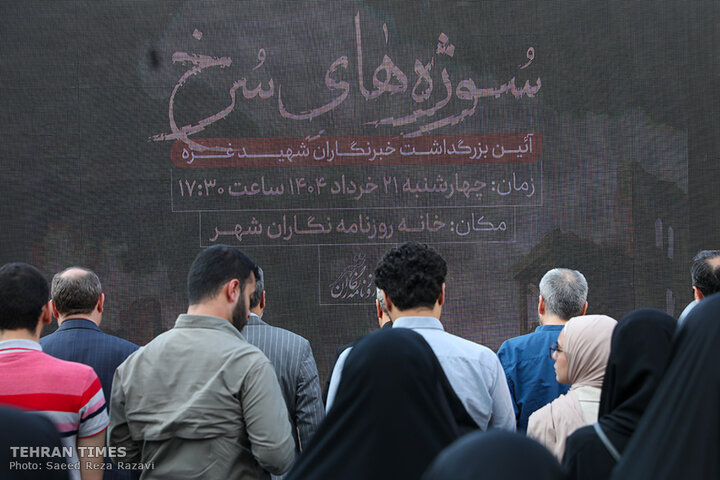 سُوژه‌های سُرخ
آئین بزرگداشت خبرنگاران شهید غزه
زمان: چهارشنبه ۲۱ خرداد ۱۴۰۴ ساعت ۱۷:۳۰
مکان: خانه روزنامه نگاران شهر
TEHRAN TIMES
Photo: Saeed Reza Razavi